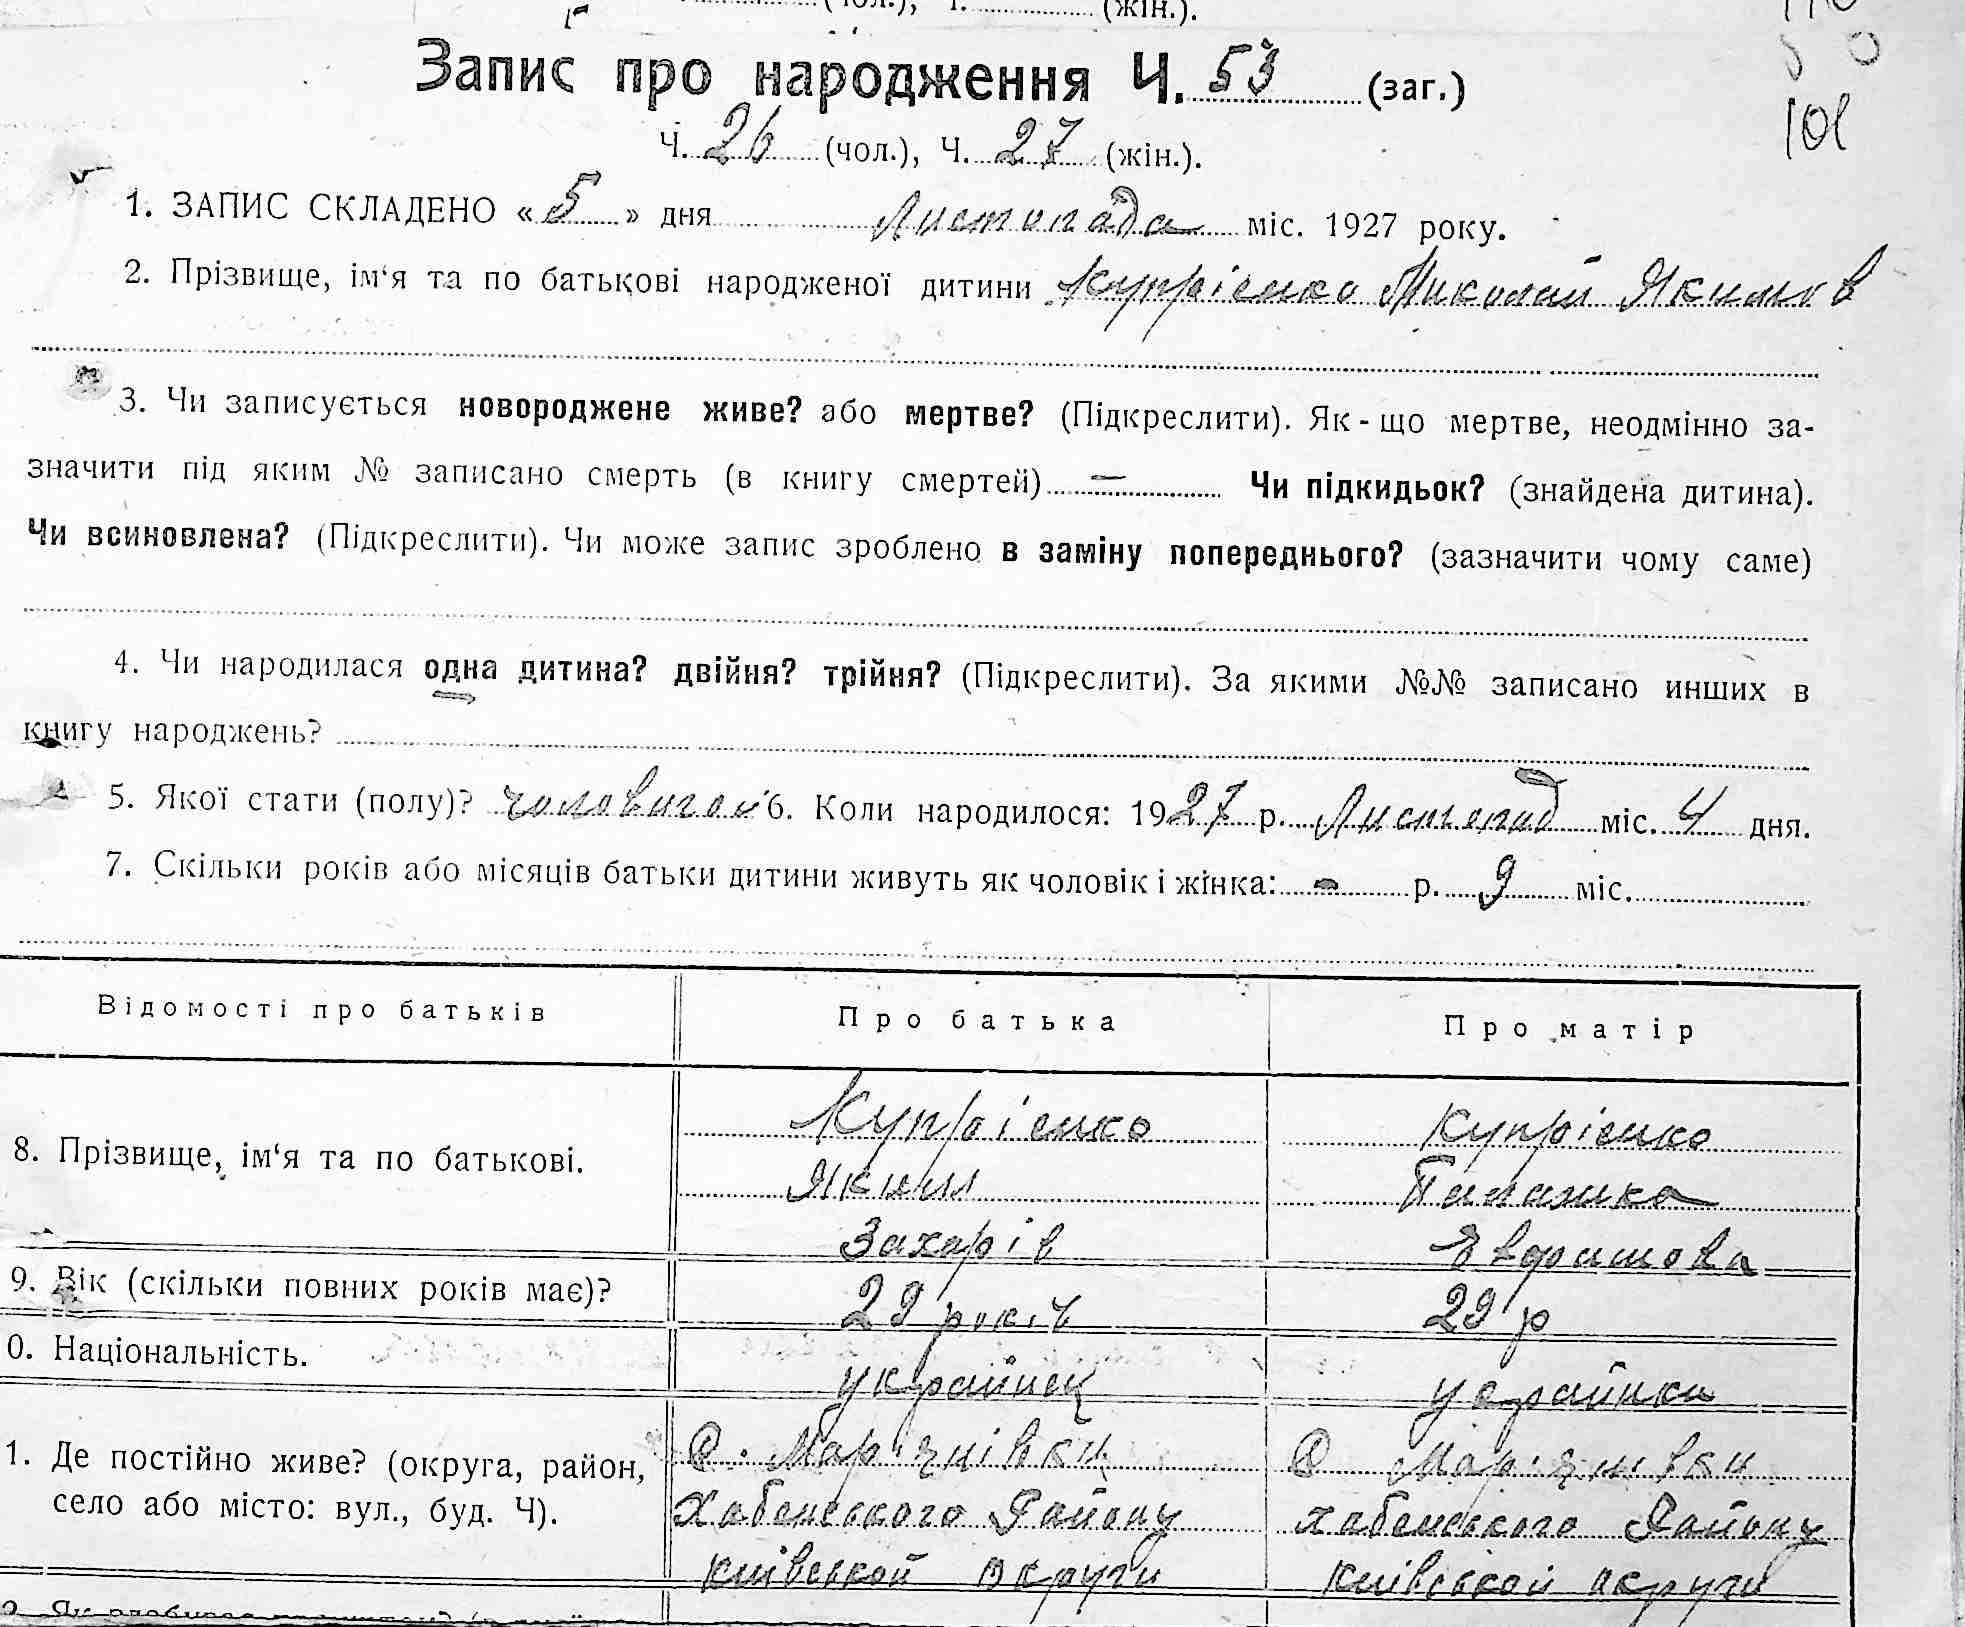 (чол.), Ч. (жін.).
Запис про народження Ч. 53 (заг.)
Ч. 26 (чол.), Ч. 27 (жін.).
101
1. ЗАПИС СКЛАДЕНО « 5 » дня Листопада міс. 1927 року.
2. Прізвище, ім‘я та по батькові народженої дитини Купрієнко Николай Якимов
3. Чи записується новороджене живе? або мертве? (Підкреслити). Як-що мертве, неодмінно за-
значити під яким № записано смерть (в книгу смертей) — Чи підкидьок? (знайдена дитина).
Чи всиновлена? (Підкреслити). Чи може запис зроблено в заміну попереднього? (зазначити чому саме)
4. Чи народилася одна дитина? двійня? трійня? (Підкреслити). За якими №№ записано инших в
книгу народжень?
5. Якої стати (полу)? 6. Коли народилося: 1927 р. Листопад міс. 4 дня.
7. Скільки років або місяців батьки дитини живуть як чоловік і жінка: - р. 9 міс.
Відомості про батьків Про батька Про матір
8. Прізвище, ім‘я та по батькові. Купрієнко Купрієнко
Яким
Захарів
9. Вік (скільки повних років має)? 29 років 29 р
0. Національність. украйнец украйнка
1. Де постійно живе? (округа, район, С. С.
село або місто: вул., буд. Ч). Хабенського Району Хабенського Району
київськой округи київськой округи